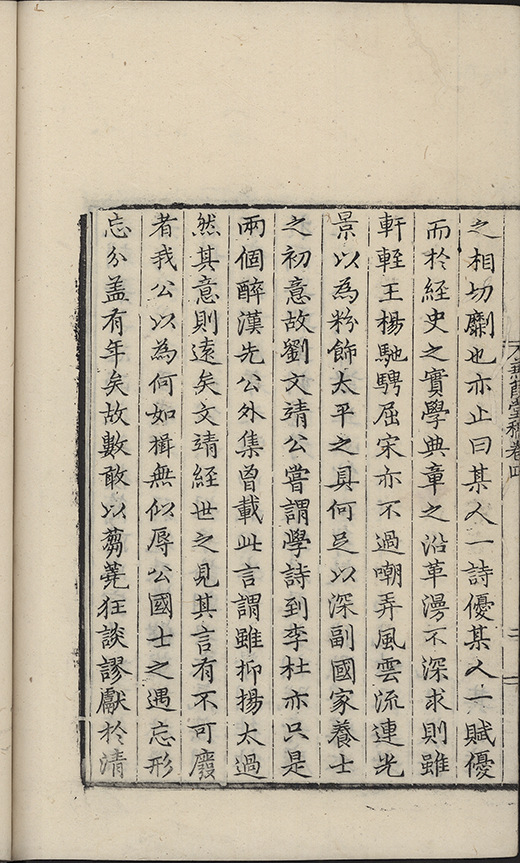 之相切劘也亦止曰某人一詩優某人一賦優
而於經史之實學典章之沿革漫不深求則雖
軒輊王楊馳騁屈宋亦不過嘲弄風雲流連光
景以為粉飾太平之具何足以深副國家養士
之初意故劉文靖公嘗謂學詩到李杜亦只是
兩個醉漢先公外集曾載此言謂雖抑揚太過
然其意則遠矣文靖經世之見其言有不可廢
者我公以為何如楫無似辱公國士之遇忘形
忘分盖有年矣故數敢以蒭蕘狂談謬獻於清
堂稿卷四